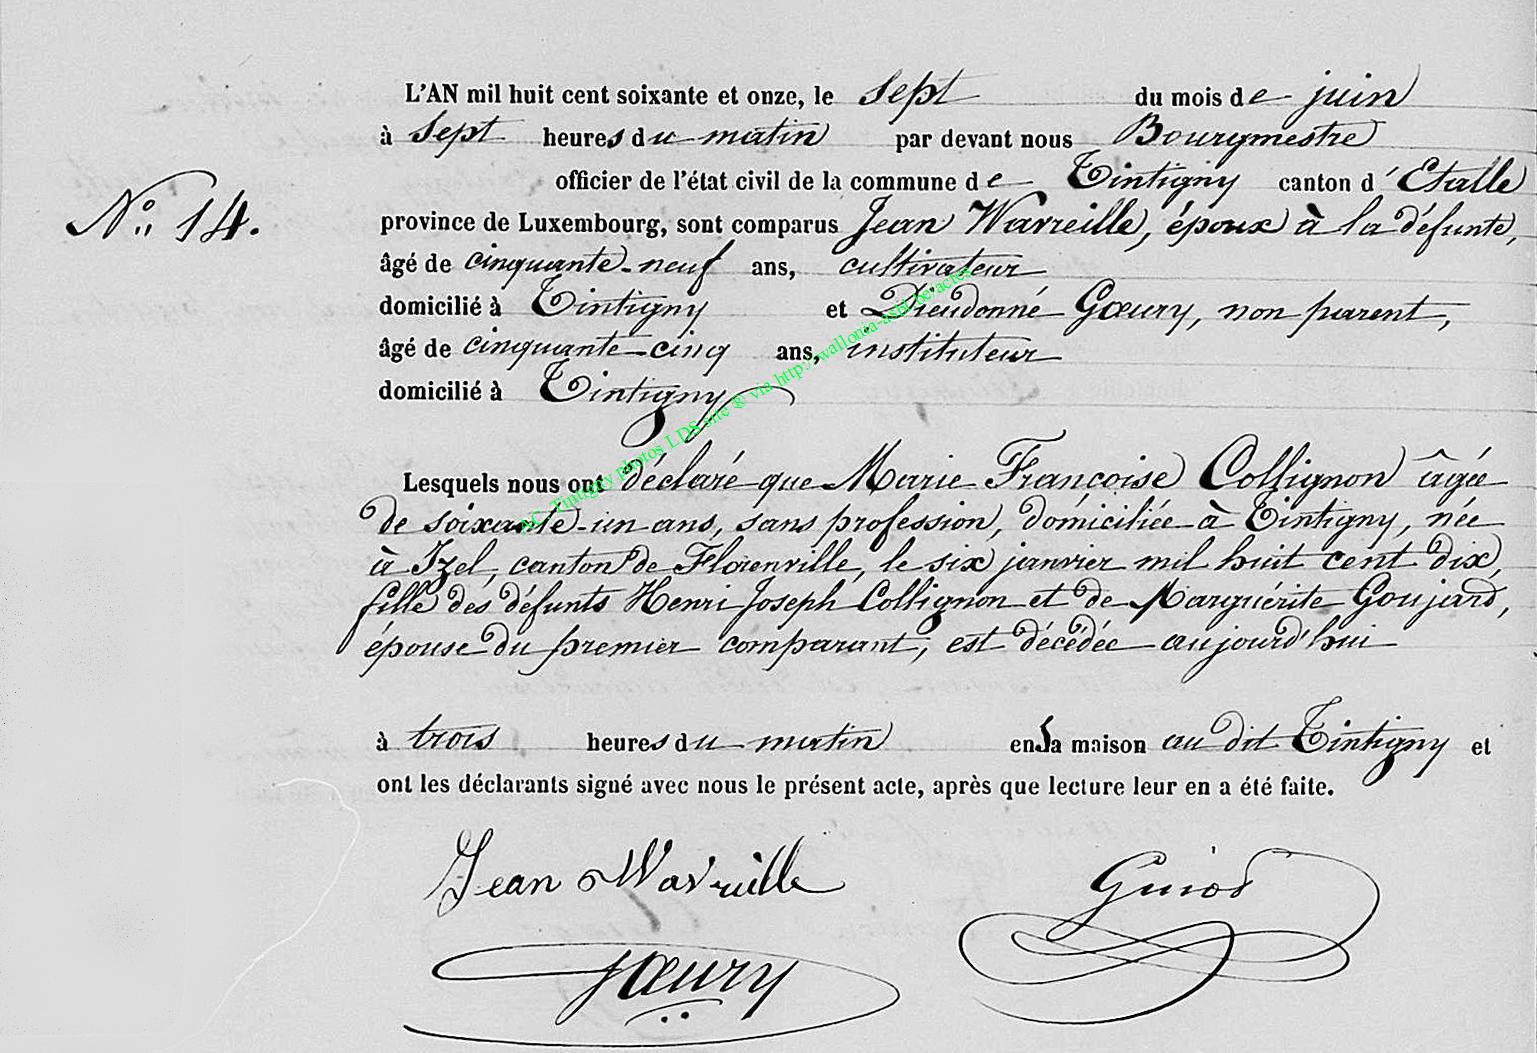 L'AN mil huit cent soixante et onze, le sept du mois de juin
à sept heures du matin par devant nous Bourgmestre
officier de l'état civil de la commune de Tintigny canton d'Etalle
N° 14.
province de Luxembourg, sont comparus Jean Wavreille, époux à la défunte,
âgé de cinquante-neuf ans, cultivateur
domicilié à Tintigny et Dieudonné Gœury, non parent,
âgé de cinquante-cinq ans, instituteur
domicilié à Tintigny
AC Tintigny photos LDS site ® via http://wallonia-asbl.be/actes
Lesquels nous ont déclaré que Marie Françoise Collignon âgée
de soixante-un ans, sans profession, domiciliée à Tintigny, née
à Izel, canton de Florenville, le six janvier mil huit cent dix,
fille des défunts Henri Joseph Collignon et de Marguérite Goujard,
épouse du premier comparant, est décédée aujourd'hui
à trois heures du matin en sa maison au dit Tintigny et
ont les déclarants signé avec nous le présent acte, après que lecture leur en a été faite.
Jean Wavreille Guiot
Gœury